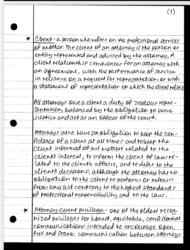 (1)
* Client - a person who relies on the professional services
of another. The client of an attorney is the person or
entity represented and advised by the attorney. A
client relationship commences for an attorney with
an agreement, with the performance of service
in reliance on a request for representation, or with
a statement of representation on which the client relied
All attorneys owe a client a duty of zealous repre-
sentation, balanced by the obligation to serve
justice and act as an officer of the court.
Attorneys also have an obligation to keep the con-
fidence of a client at all times and to keep the
client informed of all matters related to the
client's interest, to inform the client of laws re-
lated to the client's affairs, and to defer to the
client's decisions, although the attorney has no
obligation to the client to perform or refrain
from any act contrary to the highest standards
of professional responsibility and to the law.
* Attorney-client privilege - one of the oldest recog-
nized privileges for honest, confidential
communications intended to encourage open,
full and frank communication between attorney